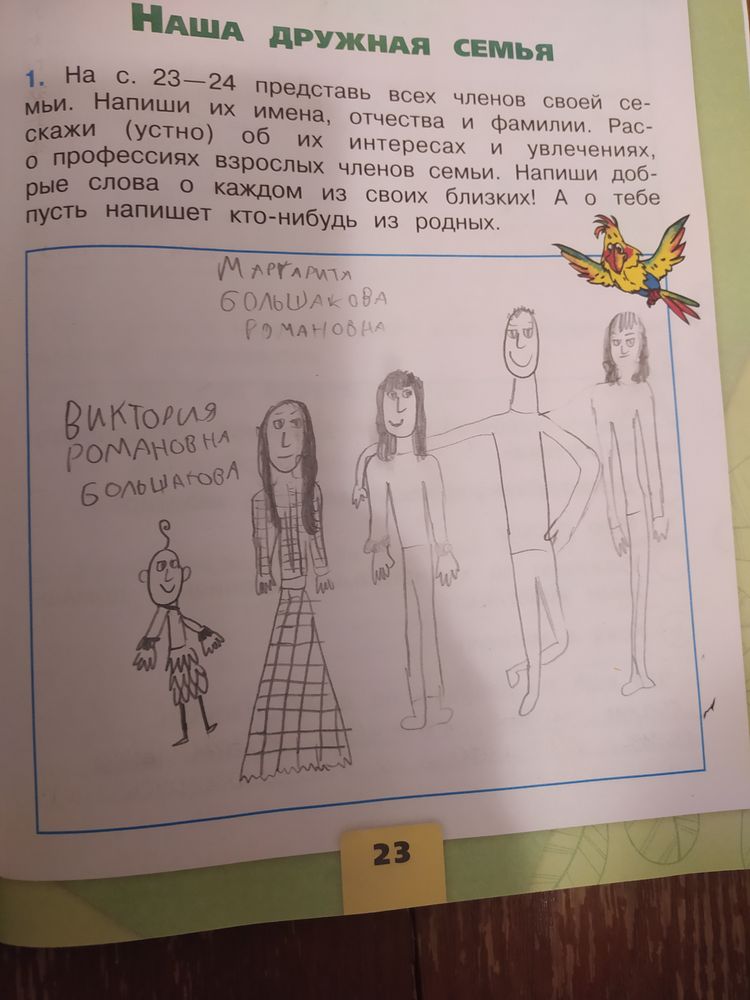 НАША ДРУЖНАЯ СЕМЬЯ
1. На с. 23—24 представь всех членов своей се-
мьи. Напиши их имена, отчества и фамилии. Рас-
скажи (устно) об их интересах и увлечениях,
о профессиях взрослых членов семьи. Напиши доб-
рые слова о каждом из своих близких! А о тебе
пусть напишет кто-нибудь из родных.
МАРГАРИТА
БОЛЬШАКОВА
РОМАНОВНА
ВИКТОРИЯ
РОМАНОВНА
БОЛЬШАКОВА
23